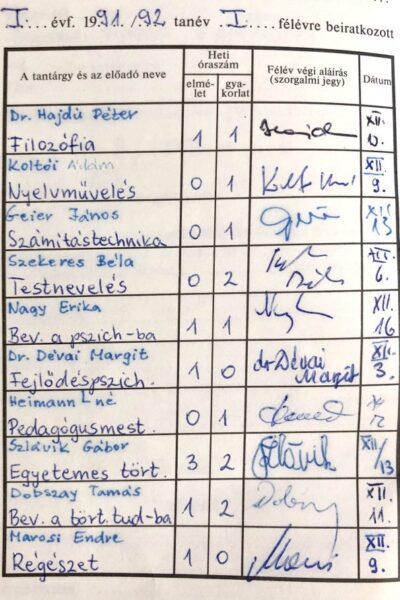 I. évf. 1991/92 tanév I. félévre beiratkozott
A tantárgy és az előadó neve
Heti óraszám
elmélet
gyakorlat
Félév végi aláírás (szorgalmi jegy)
Dátum
Dr. Hajdú Péter
Filozófia 1 1 XII. 10.
Koltói Ádám
Nyelvművelés 0 1 XII. 9.
Geier János
Számítástechnika 0 1 XII 13
Szekeres Béla
Testnevelés 0 2 XII. 6.
Nagy Erika
Bev. a pszich-ba 1 1 XII. 16
Dr. Dévai Margit
Fejlődéspszich. 1 0 dr Dévai Margit XII. 3.
Heimann Lné
Pedagógusmest. 0 1
Szlávik Gábor
Egyetemes tört. 3 2 Szlávik XII/13
Dobszay Tamás
Bev. a tört. tud-ba 1 2 XII. 11.
Marosi Endre
Régészet 1 0 XII. 9.